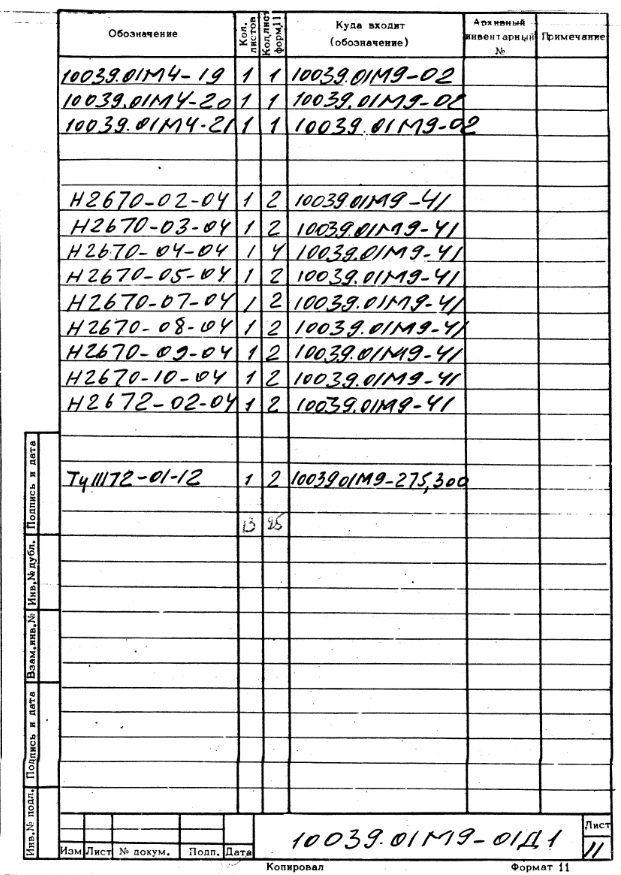 Обозначение Кол. листов Кол.лист форм.11 Куда входит (обозначение) Архивный инвентарный № Примечание
10039.01М4-19 1 1 10039.01М9-02
10039.01М4-20 1 1 10039.01М9-02
10039.01М4-21 1 1 10039.01М9-02
Н2670-02-04 1 2 10039.01М9-41
Н2670-03-04 1 2 10039.01М9-41
Н2670-04-04 1 4 10039.01М9-41
Н2670-05-04 1 2 10039.01М9-41
Н2670-07-04 1 2 10039.01М9-41
Н2670-08-04 1 2 10039.01М9-41
Н2670-09-04 1 2 10039.01М9-41
Н2670-10-04 1 2 10039.01М9-41
Н2672-02-04 1 2 10039.01М9-41
1 2 10039.01М9-275,300
13 25
Подпись и дата
Инв.№ дубл.
Взам.инв.№
Подпись и дата
Инв.№ подл.
Изм Лист № докум. Подп. Дата
10039.01М9-01Д1
Лист
11
Копировал Формат 11